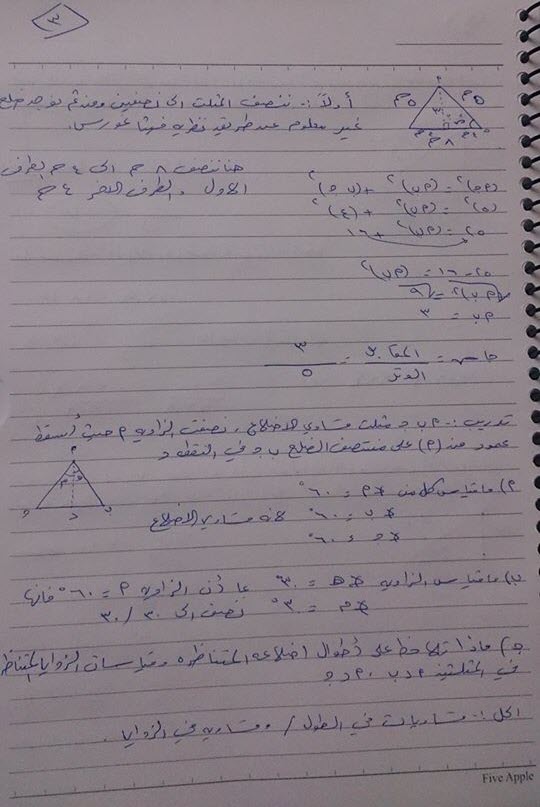 ٣
أولاً :- ننصف المثلث الى نصفين ومن ثم نوجد ضلع
غير معلوم عن طريق نظرية فيثاغورس.
٥ م ٥ م
٣
٨ م
هنا ننصف ٨ م الى ٤ م بطرف
الاول , الطرف الاخر ٤ م
(م ج)٢ = (م ب)٢ + (ب ج)٢
(٥)٢ = (م ب)٢ + (٤)٢
٢٥ = (م ب)٢ + ١٦
٢٥ - ١٦ = (م ب)٢
(م ب)٢ = ٩
م ب = ٣
جا س = المقابل = ٣
الوتر ٥
تدريب :- م ب ج مثلث متساوي الاضلاع , نصفت الزاوية م حيث أُسقط
عمود من (م) على منتصف الضلع ب ج في النقطة د
م) ما قياس كل من م = ٦٠°
ب = ٦٠° لانه متساوي الاضلاع
ج = ٦٠°
ب) ما قياس الزاوية ه = ٣٠° بما أن الزاوية م = ٦٠° فإنها
م = ٣٠° نصف الى ٣٠ / ٣٠
ج) ماذا تلاحظ على أطوال اضلاعه المتناظرة وقياسات الزوايا المتناظرة
في المثلثين م د ب , م د ج
الحل :- متساويات في الطول / ومتساوية في الزوايا .
Five Apple